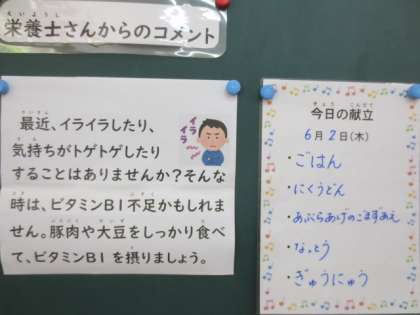 栄養士さんからのコメント
最近、イライラしたり、
気持ちがトゲトゲしたり
することはありませんか？そんな
時は、ビタミンB1不足かもしれま
せん。豚肉や大豆をしっかり食べ
て、ビタミンB1を摂りましょう。
イライラ
今日の献立
6月2日(木)
・ごはん
・にくうどん
・あぶらあげのごまずあえ
・なっとう
・ぎゅうにゅう